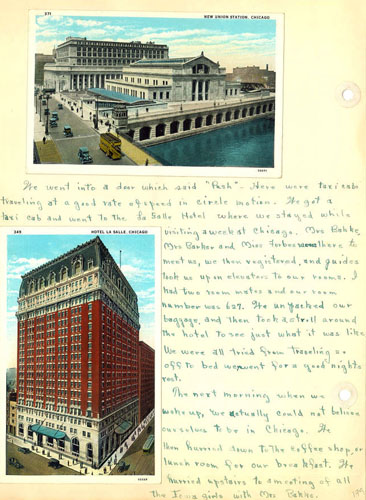 271
NEW UNION STATION, CHICAGO
We went into a door which said "Push". Here were taxi cabs
traveling at a good rate of speed in circle motion. We got a
taxi cab and went to the La Salle Hotel where we stayed while
visiting a week at Chicago. Mrs Bahke,
Mrs Barker and Miss Forbes were there to
meet us, we then registered, and guides
took us up on elevators to our rooms. I
had two room mates and our room
number was 627. We unpacked our
baggage, and then took a stroll around
the hotel to see just what it was like.
We were all tired from traveling so
off to bed we went for a good nights
rest.
The next morning when we
woke up, we actually could not believe
ourselves to be in Chicago. We
then hurried down to the coffee shop, or
lunch room for our breakfast. We
hurried upstairs to a meeting of all
the Iowa girls with Mrs Bahke.
249
HOTEL LA SALLE, CHICAGO